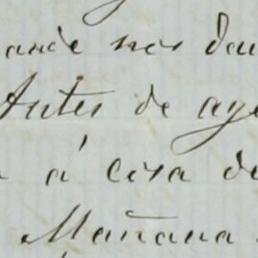 ande nos dau
Antes de aye
a á casa de
Mañana